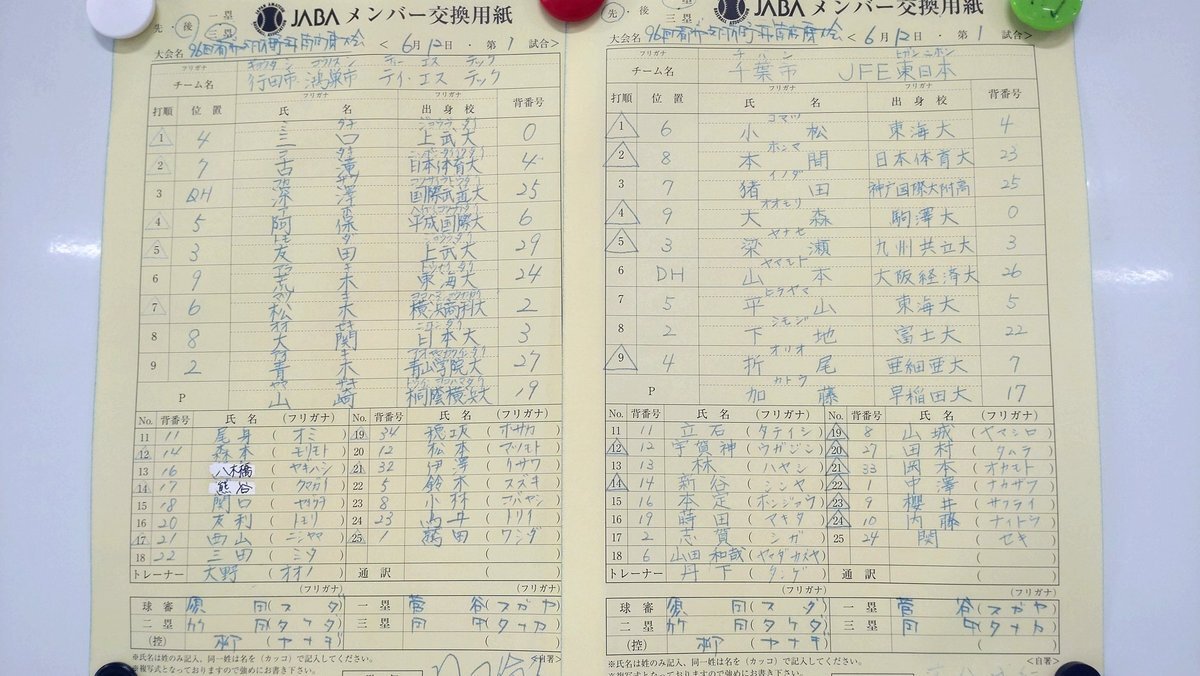 JABA メンバー交換用紙
先・後 一塁 三塁
大会名 < 6月12日・第1試合>
フリガナ ギョウダシ コウノスシ ティー エス テック
チーム名 行田市・鴻巣市 ティ・エス テック
打順 位置 氏名 フリガナ 出身校 フリガナ 背番号
1 4 三口 上武大 0
2 7 古瀧 日本体育大 4
3 DH 深澤 国際武道大 25
4 5 阿保 平成国際大 6
5 3 友田 上武大 29
6 9 荒木 東海大 24
7 6 松木 横浜商科大 2
8 8 大関 日本大 3
9 2 青木 青山学院大 27
P 山崎 桐蔭横浜大 19
No. 背番号 氏名 (フリガナ) No. 背番号 氏名 (フリガナ)
11 11 尾身 (オミ) 19 34 穂坂 (ホサカ)
12 14 森本 (モリモト) 20 12 松本 (マツモト)
13 16 八木橋 (ヤギハシ) 21 32 伊澤 (イザワ)
14 17 熊谷 (クマガイ) 22 5 鈴木 (スズキ)
15 18 関口 (セキグチ) 23 8 小林 (コバヤシ)
16 20 友利 (トモリ) 24 23 鳥井 (トリイ)
17 21 西山 (ニシヤマ) 25 1 鷲田 (ワシダ)
18 22 三田 (ミタ)
トレーナー 大野 (オオノ) 通訳 ( )
(フリガナ) (フリガナ)
球審 須田 (スダ) 一塁 菅谷 (スガヤ)
二塁 竹田 (タケダ) 三塁 田中 (タナカ)
(控) 柳 (ヤナギ)
※氏名は姓のみ記入、同一姓は名を(カッコ)で記入してください。 <自署>
※複写式となっておりますので強めにお書き下さい。
JABA メンバー交換用紙
先・後 一塁 三塁
大会名 < 6月12日・第1試合>
フリガナ チバシ ヒガシニホン
チーム名 千葉市 JFE東日本
打順 位置 氏名 フリガナ 出身校 フリガナ 背番号
1 6 小松 コマツ 東海大 4
2 8 本間 ホンマ 日本体育大 23
3 7 猪田 イノダ 神戸国際大附高 25
4 9 大森 オオモリ 駒澤大 0
5 3 梁瀬 ヤナセ 九州共立大 3
6 DH 山本 ヤマモト 大阪経済大 26
7 5 平山 ヒラヤマ 東海大 5
8 2 下地 シモジ 富士大 22
9 4 折尾 オリオ 亜細亜大 7
P 加藤 カトウ 早稲田大 17
No. 背番号 氏名 (フリガナ) No. 背番号 氏名 (フリガナ)
11 11 立石 (タテイシ) 19 8 山城 (ヤマシロ)
12 12 宇賀神 (ウガジン) 20 27 田村 (タムラ)
13 13 林 (ハヤシ) 21 33 岡本 (オカモト)
14 14 新谷 (シンヤ) 22 1 中澤 (ナカザワ)
15 16 本定 (ホンジョウ) 23 9 櫻井 (サクライ)
16 19 蒔田 (マキタ) 24 10 内藤 (ナイトウ)
17 2 志賀 (シガ) 25 24 関 (セキ)
18 6 山田 和哉 (ヤマダカズヤ)
トレーナー 丹下 (タンゲ) 通訳 ( )
(フリガナ) (フリガナ)
球審 須田 (スダ) 一塁 菅谷 (スガヤ)
二塁 竹田 (タケダ) 三塁 田中 (タナカ)
(控) 柳 (ヤナギ)
※氏名は姓のみ記入、同一姓は名を(カッコ)で記入してください。 <自署>
※複写式となっておりますので強めにお書き下さい。